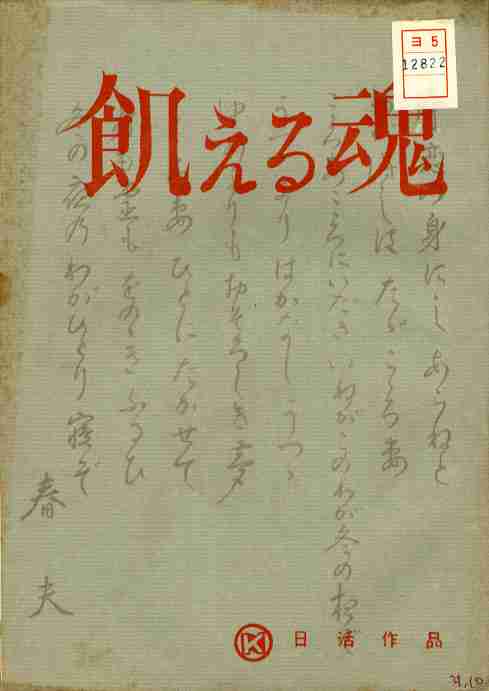 ヨ5
12822
飢える魂
の身にしあらねど
しはたゞこゝろ妻
こゝろにいだき いねがてのわが冬の夜ぞ
よりはかなしうつゝ
よりもおそろしき夢
妻 ひとにだかせて
身も霊も をのゝきふるひ
冬の夜の わがひとり寝ぞ
春夫
K 日活作品